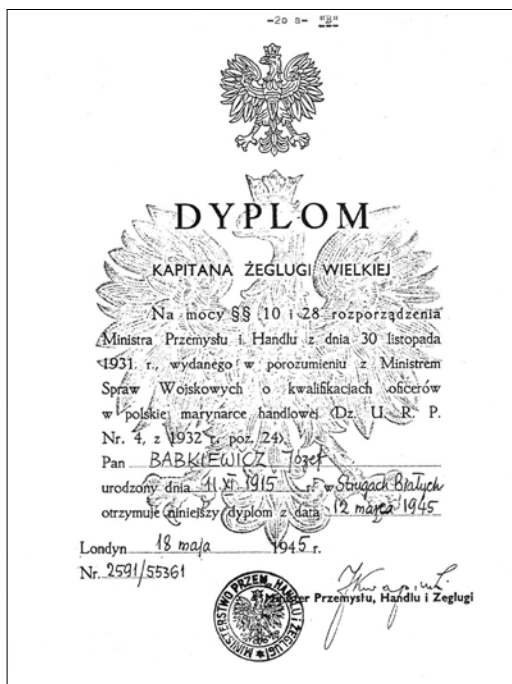 -20 a- "B"
DYPLOM
KAPITANA ŻEGLUGI WIELKIEJ
Na mocy §§ 10 i 28 rozporządzenia
Ministra Przemysłu i Handlu z dnia 30 listopada
1931. r., wydanego w porozumieniu z Ministrem
Spraw Wojskowych o kwalifikacjach oficerów
w polskiej marynarce handlowej (Dz. U. R. P.
Nr. 4, z 1932 r. poz. 24).
Pan BABKIEWICZ Józef
urodzony dnia 11.XI.1915 r. w Strugach Białych
otrzymuje niniejszy dyplom z datą 12 marca 1945
Londyn 18 maja 1945 r.
Nr. 2591/55361
Minister Przemysłu, Handlu i Żeglugi
MINISTERSTWO PRZEM. HANDLU I ŻEGLUGI